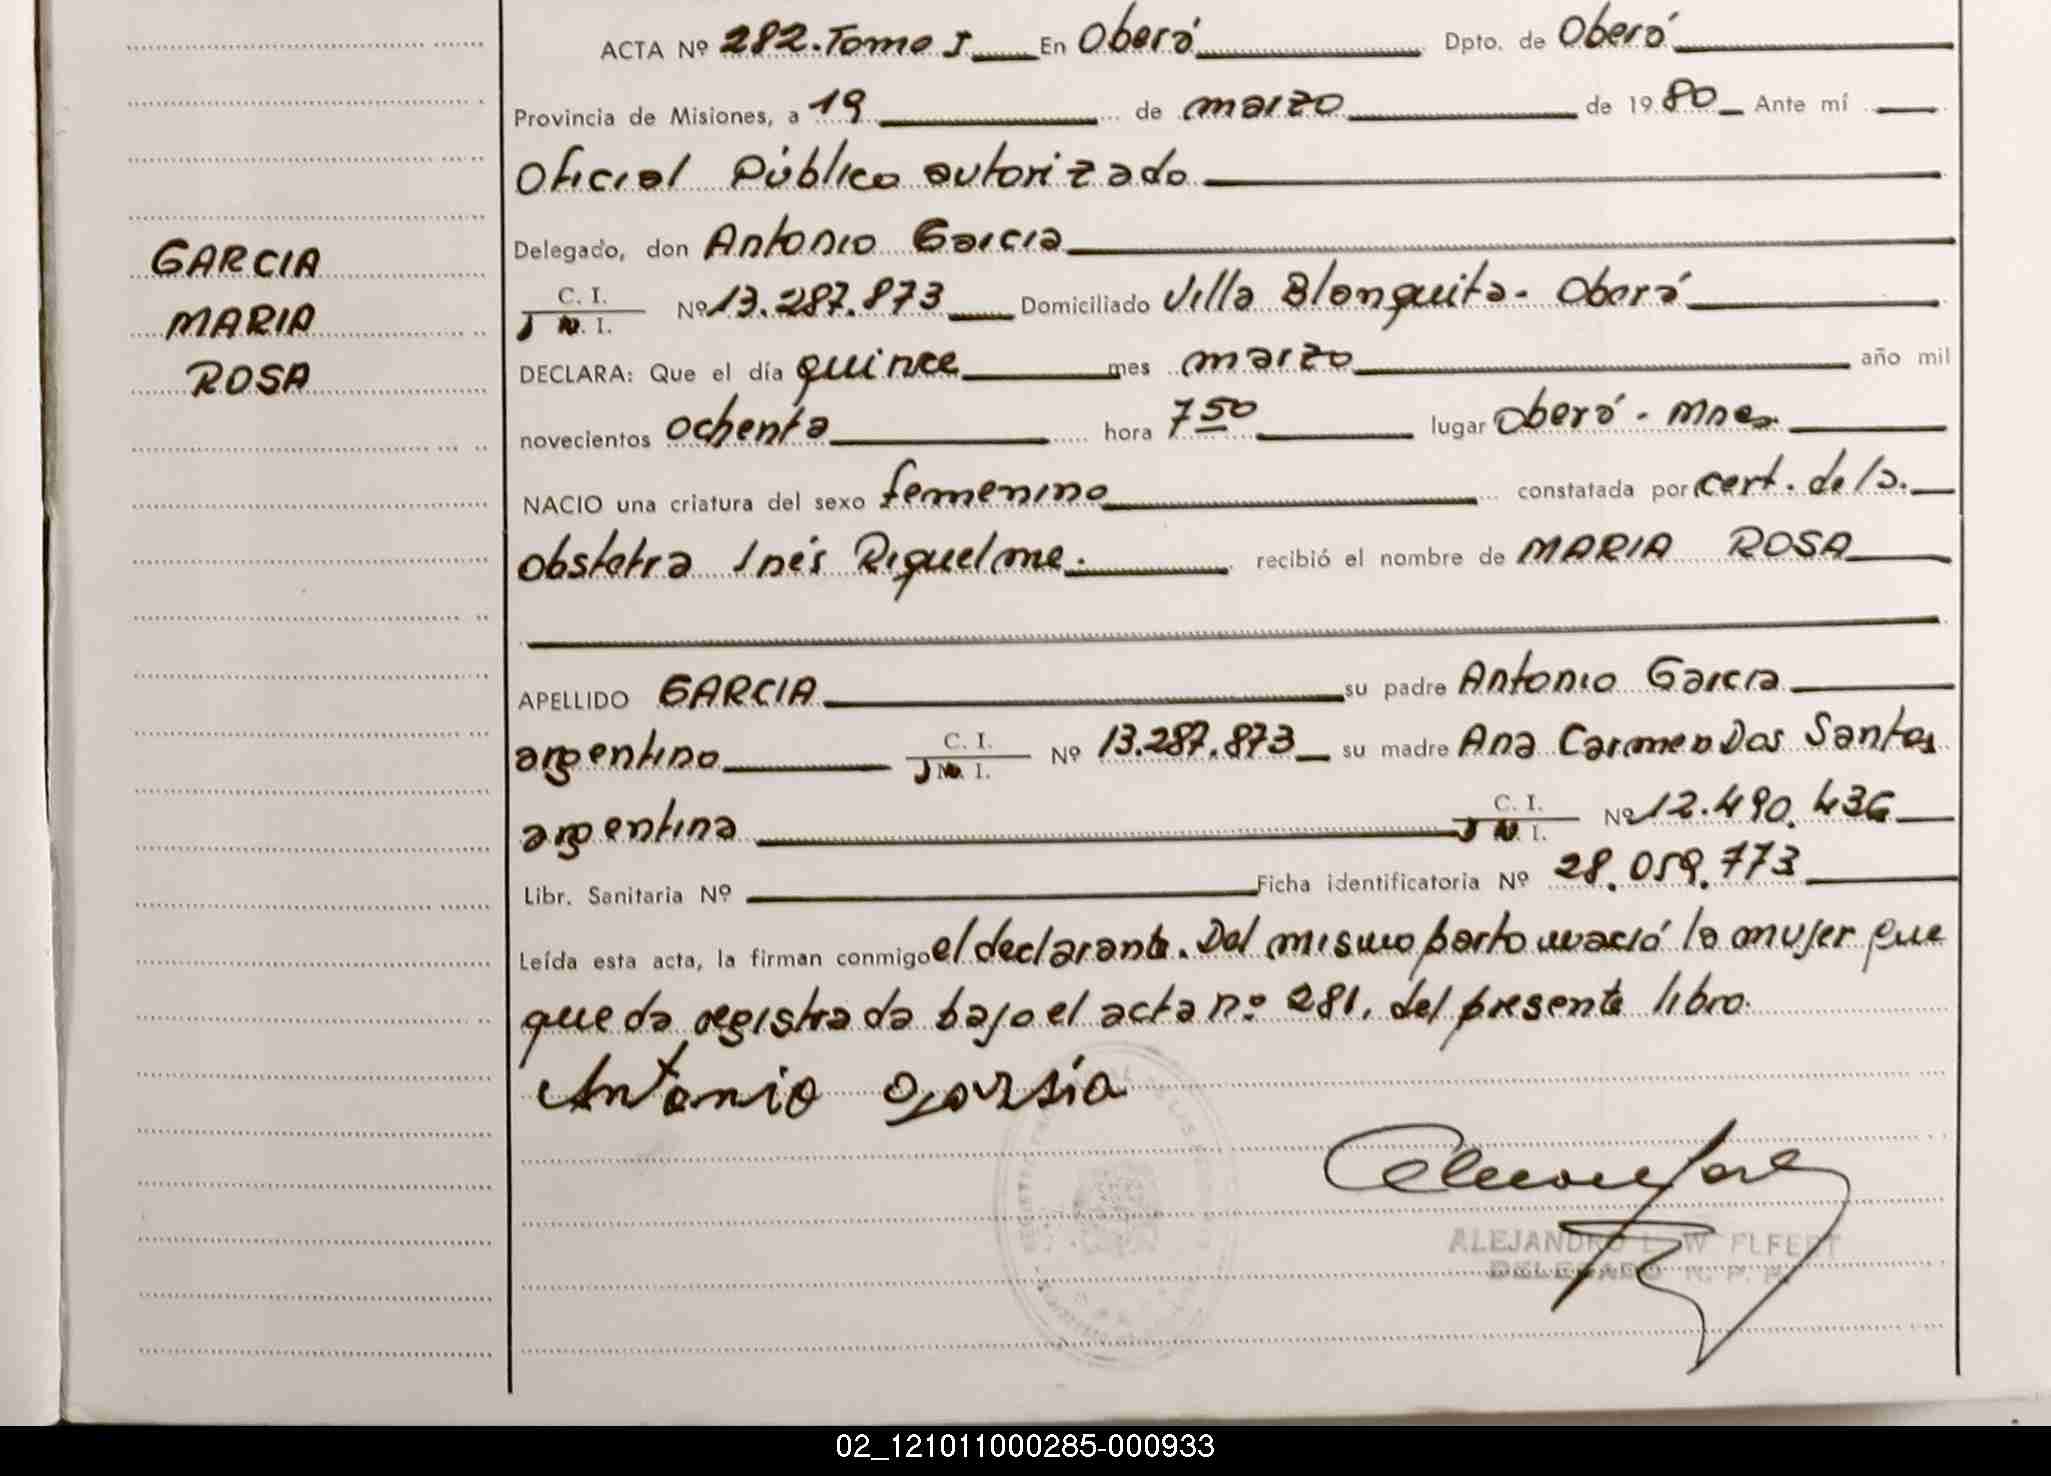 ACTA Nº 282. Tomo I En Oberá Dpto. de Oberá
Provincia de Misiones, a 19 de marzo de 1980 Ante mí
Oficial Público autorizado
Delegado, don Antonio Garcia
GARCIA
C. I.
I. Nº 13.287.873 Domiciliado Villa Blanquita - Oberá
MARIA
DECLARA: Que el día quince mes marzo año mil
ROSA
novecientos ochenta hora 7 50 lugar Oberá - Mnes.
NACIO una criatura del sexo femenino constatada por cert. de la
obstetra Inés Riquelme. recibió el nombre de MARIA ROSA
APELLIDO GARCIA su padre Antonio Garcia
argentino C. I. I. Nº 13.287.873 su madre Ana Carmen Dos Santos
argentina C. I. I. Nº 12.490.436
Libr. Sanitaria Nº Ficha identificatoria Nº 28.059.773
Leída esta acta, la firman conmigo el declarante. Del mismo parto nació la mujer que
queda registrada bajo el acta nº 281, del presente libro.
Antonio Garsia
ALEJANDRO L. W
DELEGADO R. P.
02_121011000285-000933